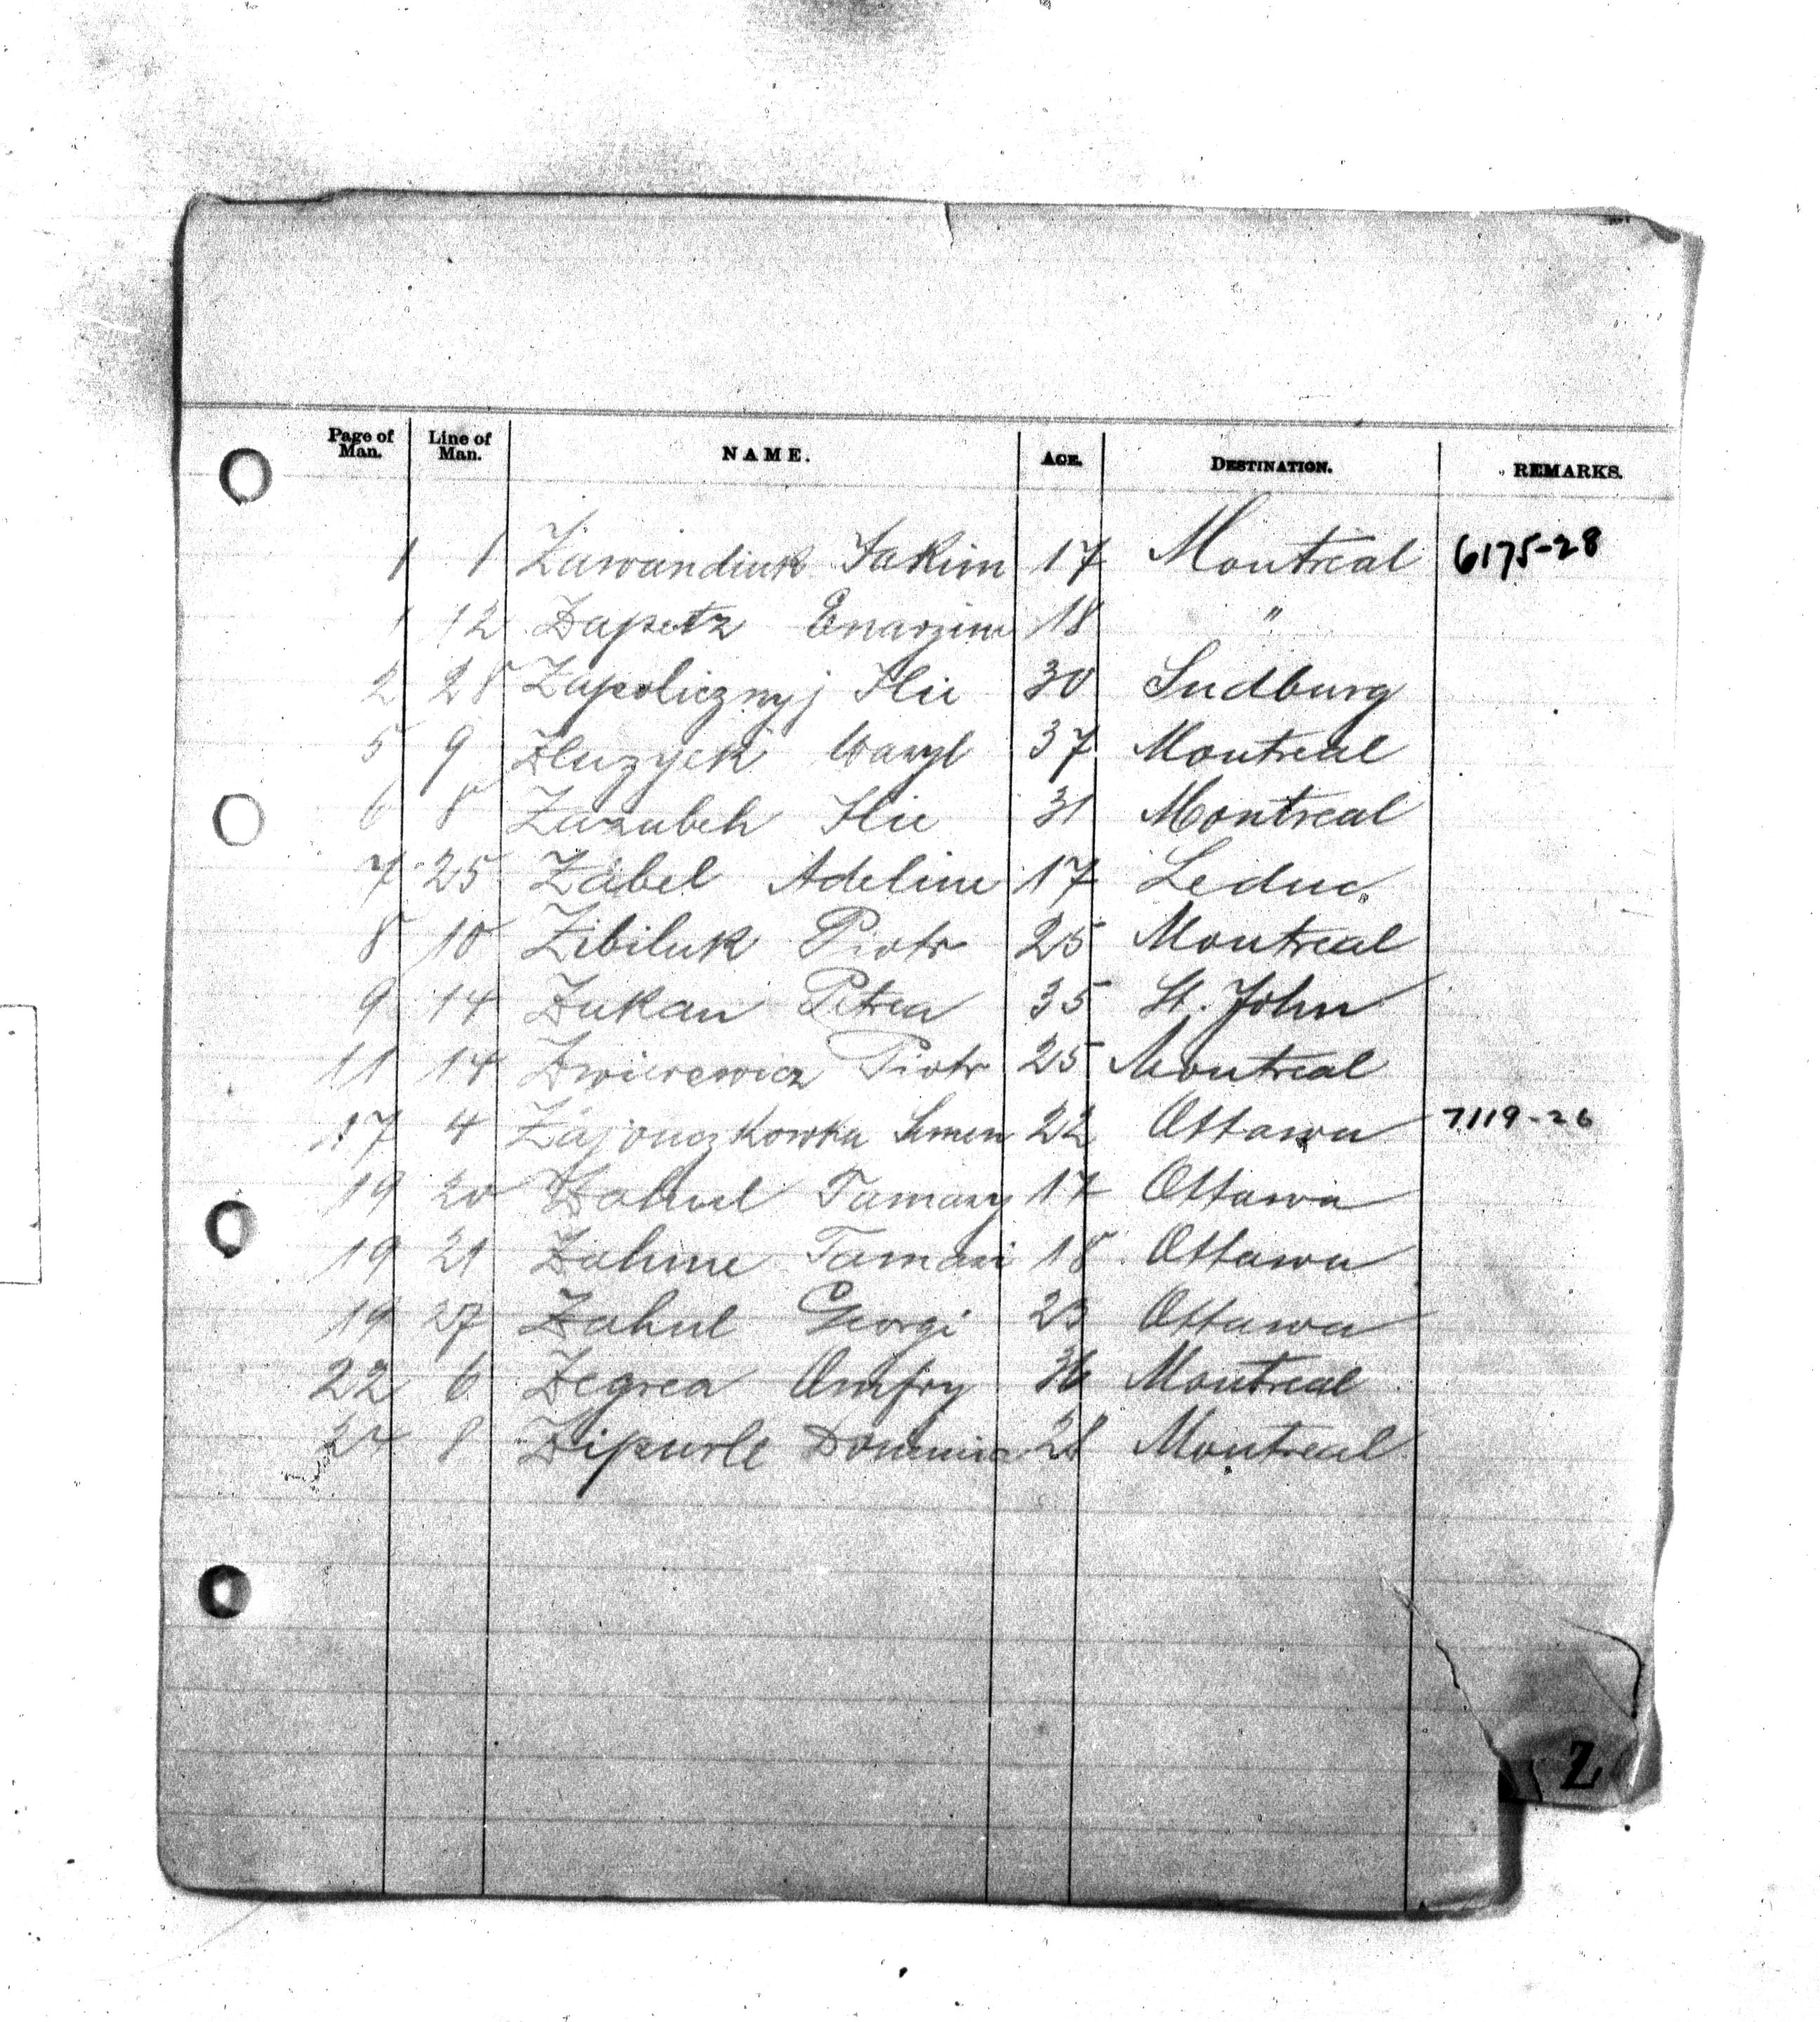 Page of Man. Line of Man. NAME. AGE. DESTINATION. REMARKS.
1 1 Zawandiuk Jakim 17 Montreal 6175-28
1 12 Zapetz 18 "
2 28 Zapolicznyj Ilie 30 Sudburg
5 9 Zluzycki Wasyl 37 Montreal
6 8 Zazubek Ilie 31 Montreal
7 25 Zabel Adeline 17 Leduc
8 10 Zibiluk Piotr 25 Montreal
9 14 Zukan Petrea 35 St. John
11 14 Zwierewicz Piotr 25 Montreal
17 4 Semen 22 Ottawa 7119-26
19 20 17 Ottawa
19 21 18 Ottawa
19 27 Zahul Georgi 23 Ottawa
22 6 Zegrea 36 Montreal
24 8 28 Montreal
Z